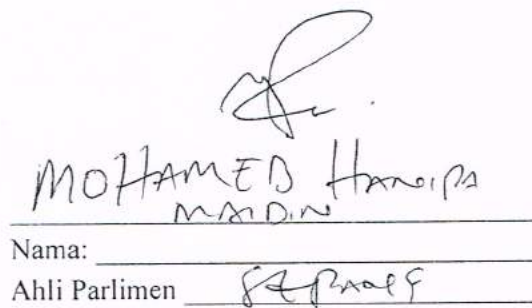 MOHAMED HANIPA
MAIDIN
Nama:
Ahli Parlimen SEPANG